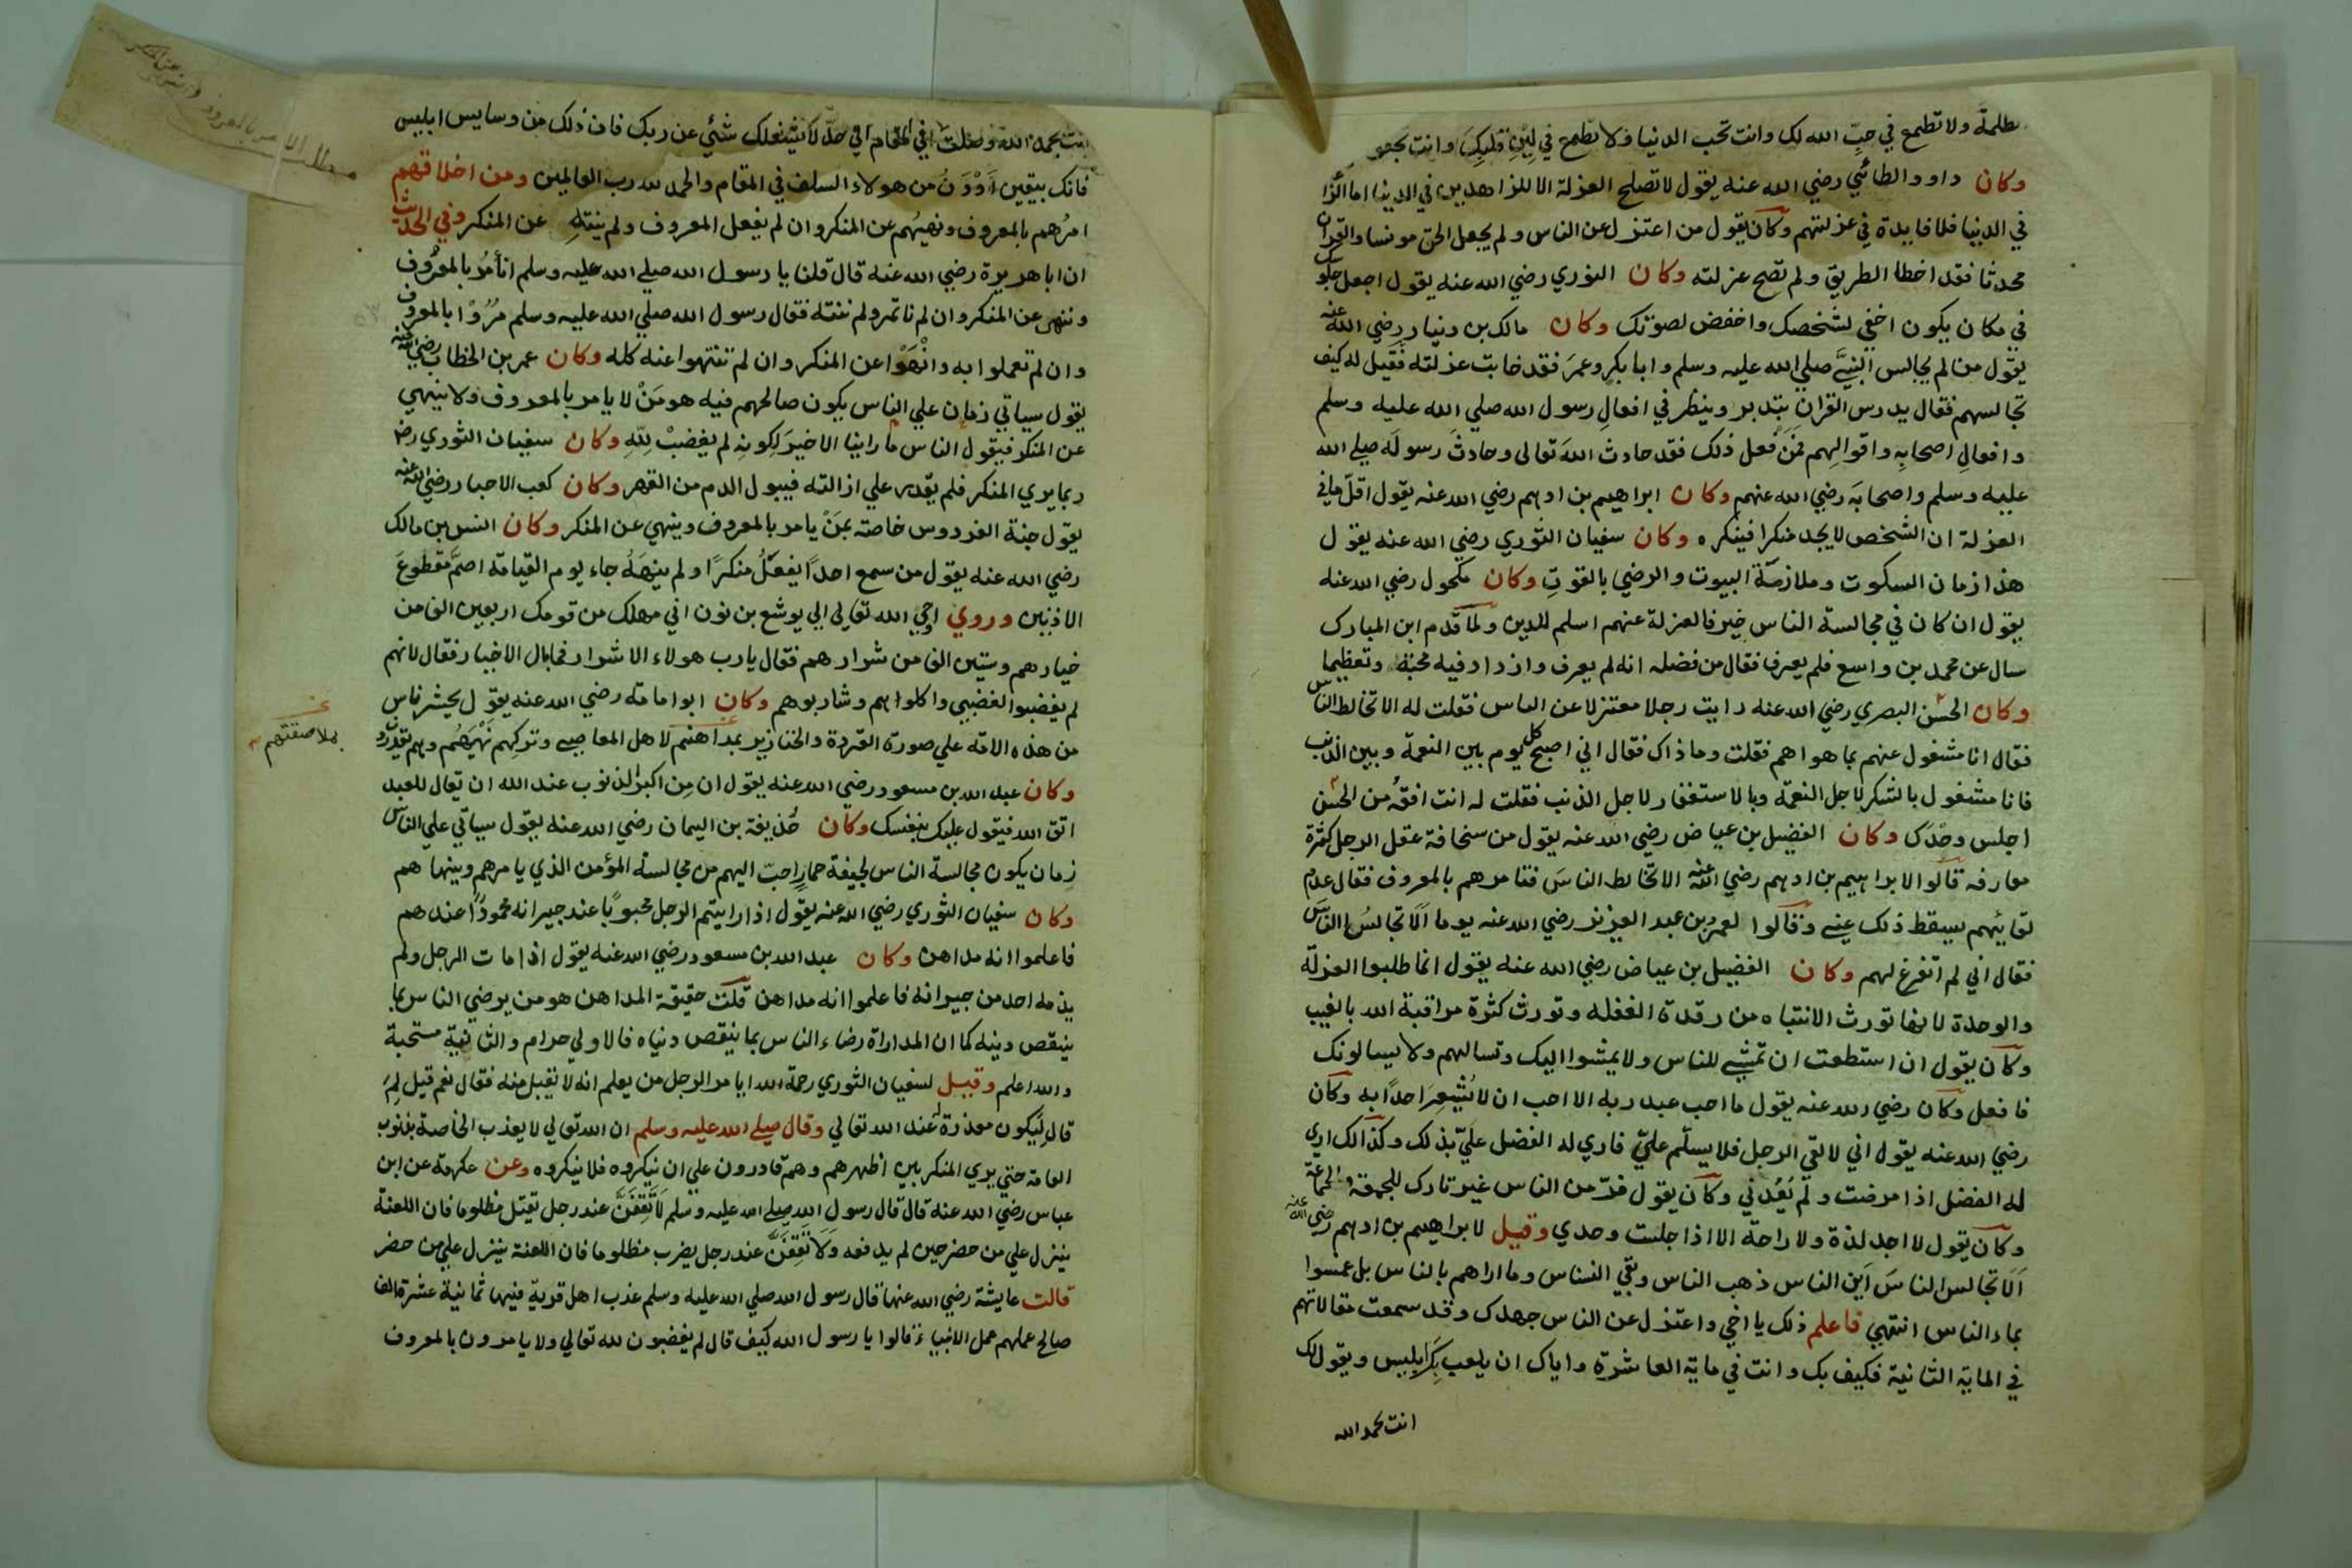 ولا تطمع في حبّ الله لك وانت تحب الدنيا ولا تطمع في لين قلبك وانت
وكان داود الطائي رضي الله عنه يقول لا تصلح العزلة الا للزاهدين في الدنيا اما
في الدنيا فلا فايدة في عزلتهم وكان يقول من اعتزل عن الناس ولم يجعل الحق مونسا والقران
محدثا فقد اخطا الطريق ولم تصح عزلته وكان الثوري رضي الله عنه يقول اجعل
في مكان يكون اخفي لشخصك واخفض لصوتك وكان مالك بن دينار رضي الله عنه
يقول من لم يجالس النبيَّ صلي الله عليه وسلم وابا بكرٍ وعمرَ فقد خابت عزلته فقيل له كيف
تجالسهم فقال يدرس القران بتدبر وينظر في افعال رسول الله صلي الله عليه وسلم
وافعال اصحابه واقوالهم فمن فعل ذلك فقد حادث اللهَ تعالى وحادث رسوله صلي الله
عليه وسلم واصحابَه رضي الله عنهم وكان ابراهيم بن ادهم رضي الله عنه يقول اقلّ ما في
العزلة ان الشخص لا يجد منكرا فينكره وكان سفيان الثوري رضي الله عنه يقول
هذا زمان السكوت وملازمة البيوت والرضي بالقوت وكان مكحول رضي الله عنه
يقول ان كان في مجالسة الناس خير فالعزلة عنهم اسلم للدين ولما قدم ابن المبارك
سال عن محمد بن واسع فلم يعرف فقال من فضله انه لم يعرف وازداد فيه محبّة وتعظيما
وكان الحسن البصري رضي الله عنه رايت رجلا معتزلا عن الناس فقلت له الا تخالط الناس
فقال انا مشغول عنهم بما هو اهم فقلت وما ذاك فقال اني اصبح كل يوم بين النعمة وبين الذنب
فانا مشغول بالشكر لاجل النعمة وبالاستغفار لاجل الذنب فقلت له انت افقهُ من الحسن
اجلس وحْدَك وكان الفضيل بن عياض رضي الله عنه يقول من سخافة عقل الرجل كثرة
معارفه قالوا لابراهيم بن ادهم رضي الله عنه الا تخالط الناسَ فتامرهم بالمعروف فقال عدم
لقائهم يسقط ذلك عني وقالوا لعمر بن عبد العزيز رضي الله عنه يوما اَلا تجالسُ الناسَ
فقال اني لم اتفرغ لهم وكان الفضيل بن عياض رضي الله عنه يقول انما طلبوا العزلة
والوحدة لانها تورث الانتباه من رقدة الغفلة وتورث كثرة مراقبة الله بالغيب
وكان يقول ان استطعت ان تمشي للناس ولا يمشوا اليك وتسالهم ولا يسالونك
فافعل وكان رضي الله عنه يقول ما احب عبد ربه الا احب ان لا يُشعِرَ احدًا به وكان
رضي الله عنه يقول اني لالقي الرجل فلا يسلّم عليّ فاري له الفضل عليّ بذلك وكذالك اري
له الفضل اذا مرضت ولم يَعُدني وكان يقول فرّ من الناس غير تارك للجمعة والجماعة
وكان يقول لا اجد لذة ولا راحة الا اذا جلست وحدي وقيل لابراهيم بن ادهم رضي الله عنه
اَلا تجالس الناسَ اَين الناس ذهب الناس وبقي النسناس وما اراهم بالناس بل غمسوا
بماء الناس انتهي فاعلم ذلك يا اخي واعتزل عن الناس جهدك وقد سمعت مقالاتهم
في الماية الثانية فكيف بك وانت في ماية العاشرة واياك ان يلعب بك ابليس ويقول لك
انت بحمد الله
انت بحمد الله وصلت في المقام الي حدّ لا يشغلك شئي عن ربك فان ذلك من وسايس ابليس
فانك بيقين اَدْوَن من هولاء السلف في المقام والحمد لله رب العالمين ومن اخلاقهم
امرُهم بالمعروف ونهيُهم عن المنكر وان لم يفعل المعروف ولم ينتهِ عن المنكر وفي الحديث
ان ابا هريرة رضي الله عنه قال قلنا يا رسول الله صلي الله عليه وسلم انأمُرُ بالمعروف
وننهي عن المنكر وان لم ناتمر ولم ننته فقال رسول الله صلي الله عليه وسلم مُرُوْا بالمعروف
وان لم تعملوا به وانْهَوْا عن المنكر وان لم تنتهوا عنه كله وكان عمر بن الخطاب رضي الله عنه
يقول سياتي زمان علي الناس يكون صالحهم فيه هو مَنْ لا يامر بالمعروف ولا ينهي
عن المنكر فيقول الناس ما راينا الا خيرَ لكونه لم يغضبْ لِلّهِ وكان سفيان الثوري رض
ربما يري المنكر فلم يقدر علي ازالته فيبول الدم من القهر وكان كعب الاحبار رضي الله عنه
يقول جنة الفردوس خاصة بمَنْ يامر بالمعروف وينهي عن المنكر وكان انس بن مالك
رضي الله عنه يقول من سمع احدًا يفعلُ منكرًا ولم ينهَهُ جاء يوم القيامة اصمَّ مقطوعَ
الاذنين وروي اوحي الله تعالي الي يوشع بن نون اني مهلك من قومك اربعين الف من
خيارهم وستين الف من شرارهم فقال يا رب هولاء الاشرار فما بال الاخيار فقال لانهم
لم يغضبوا لغضبي واكلواهم وشاربوهم وكان ابو امامة رضي الله عنه يقول يحشر ناس
من هذه الامة علي صورة القردة والخنازير بمداهنتهم لاهل المعاصي وتركهم نَهْيَهُم وهم يقدرون
بملاصقتهم
وكان عبد الله بن مسعود رضي الله عنه يقول ان مِن اكبر الذنوب عند الله ان يقال للعبد
اتق الله فيقول عليك بنفسك وكان حُذيفة بن اليمان رضي الله عنه يقول سياتي علي الناس
زمان يكون مجالسة الناس لجيفة حمارٍ احبّ اليهم من مجالسة المؤمن الذي يامرهم وينهاهم
وكان سفيان الثوري رضي الله عنه يقول اذا رايتم الرجل محبوبًا عند جيرانه محمودًا عندهم
فاعلموا انه مداهن وكان عبد الله بن مسعود رضي الله عنه يقول اذا مات الرجل ولم
يذمه احد من جيرانه فاعلموا انه مداهن قلت حقيقة المداهن هو من يرضي الناس بما
ينقص دينه كما ان المداراة رضاء الناس بما ينقص دنياه فالاولي حرام والثانية مستحبة
والله اعلم وقيل لسفيان الثوري رحمة الله ايامر الرجل من يعلم انه لا يقبل منه فقال نعم قيل لِمَ
قال ليكون معذرة عند الله تعالي وقال صلي الله عليه وسلم ان الله تعالي لا يعذب الخاصة بذنوب
العامة حتي يري المنكر بين اظهرهم وهم قادرون علي ان ينكروه فلا ينكروه وعن عكرمة عن ابن
عباس رضي الله عنه قال قال رسول الله صلي الله عليه وسلم لا تَقِفَنَّ عند رجل يقتل مظلوما فان اللعنة
ينزل علي من حضر حين لم يدفعه وَلا تَقِفَنَّ عند رجل يضرب مظلوما فان اللعنة ينزل علي من حضر
قالت عايشة رضي الله عنها قال رسول الله صلي الله عليه وسلم عذب اهل قرية فيها ثمانية عشرة الف
صالح عملهم عمل الانبياء قالوا يا رسول الله كيف قال لم يغضبون لله تعالي ولا يامرون بالمعروف
مطلب الامر بالمعروف